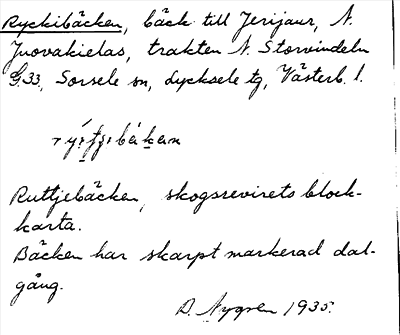 Ryckibäcken, bäck till Jerijaur, N.
Juovakielas, trakten N. Storvindeln
G.33, Sorsele sn, Lycksele tg, Västerb. l.
Ruttjebäcken, skogsrevirets block-
karta.
Bäcken har skarpt markerad dal-
gång.
D. Nygren 1935.